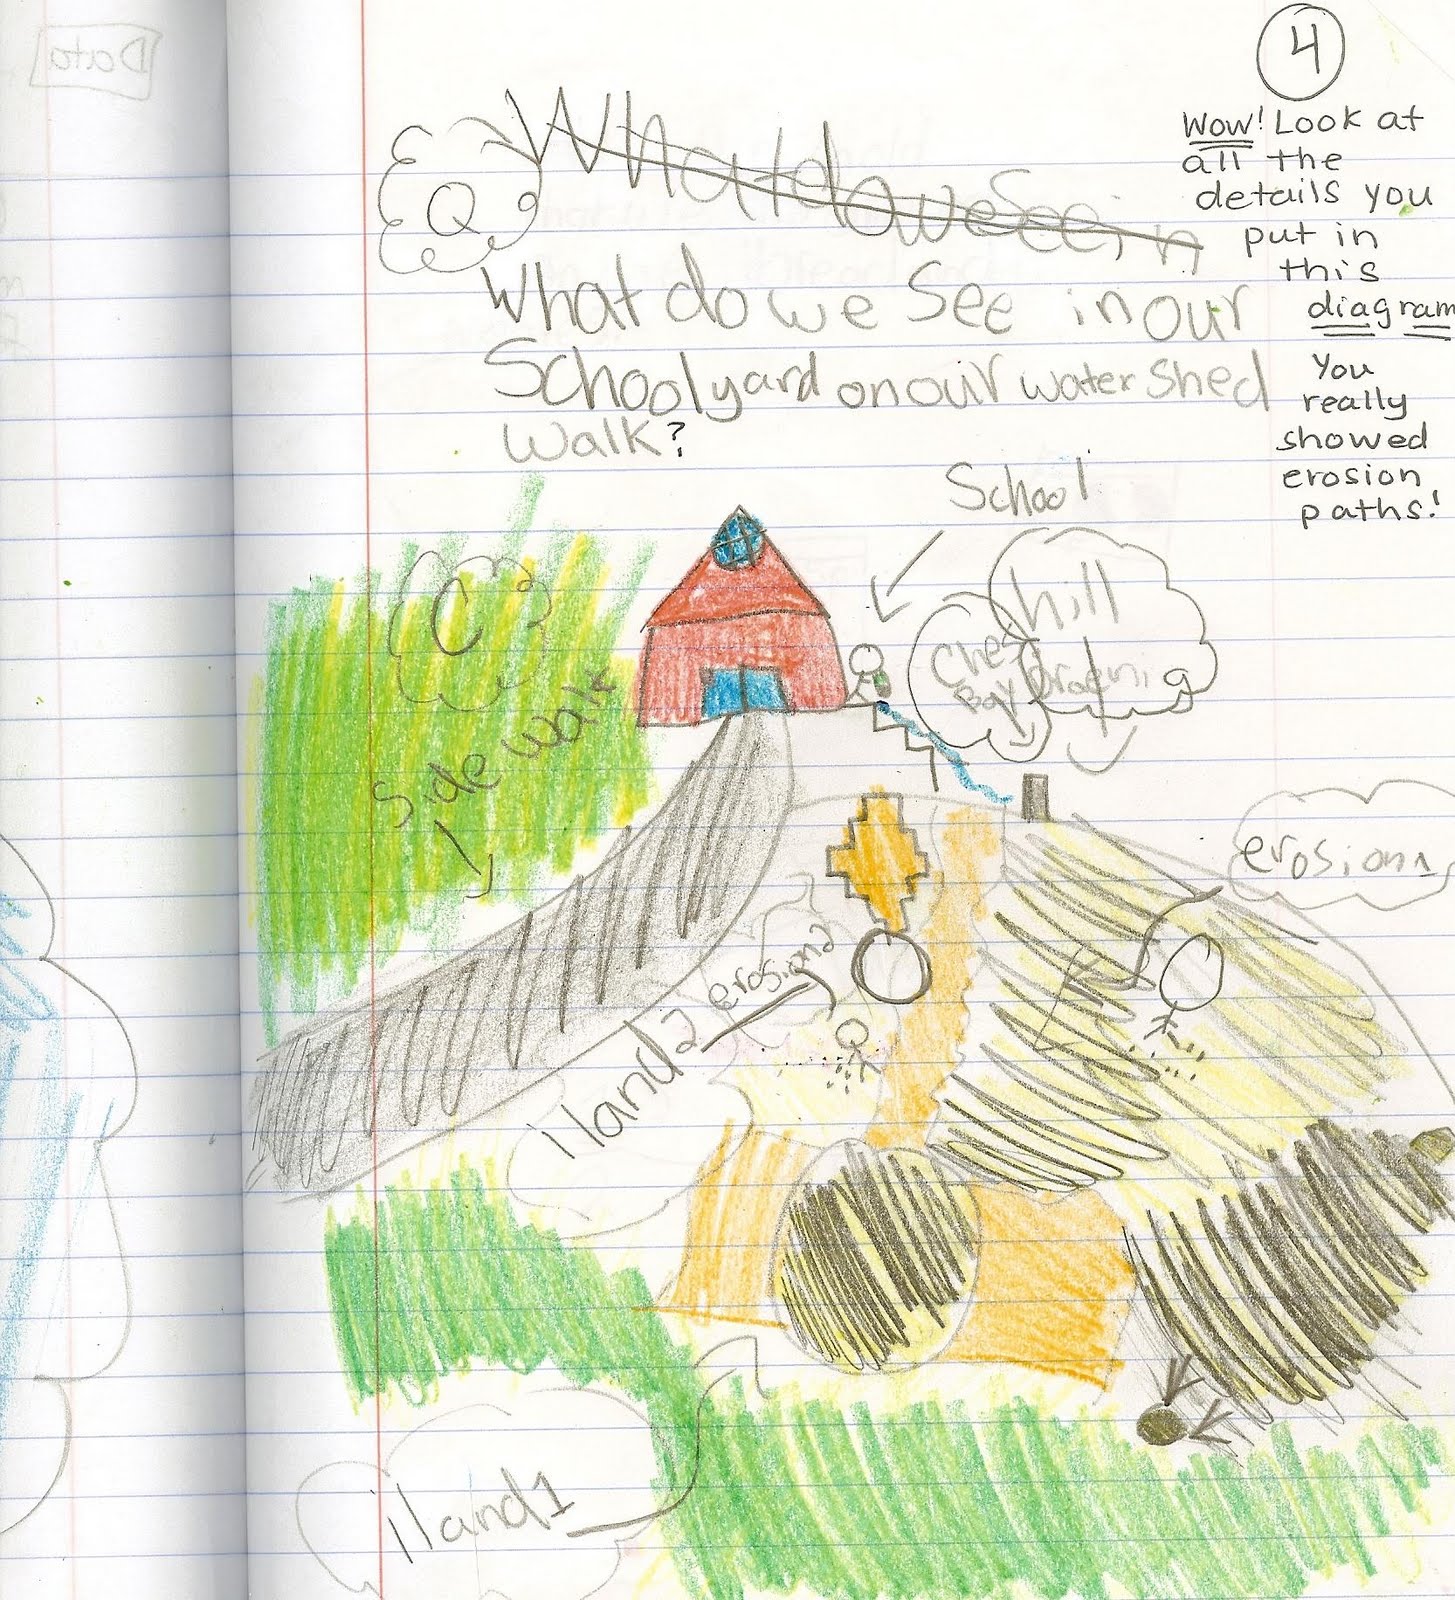 Data
4
Wow! Look at
all the
details you
put in
this
diagram
You
really
showed
erosion
paths!
Q
What do we See in
What do we See in our
Schoolyard on our water shed
Walk?
School
C
Side walk
hill
Ches
Bay
erosion1
erosion2
iland2
iland1